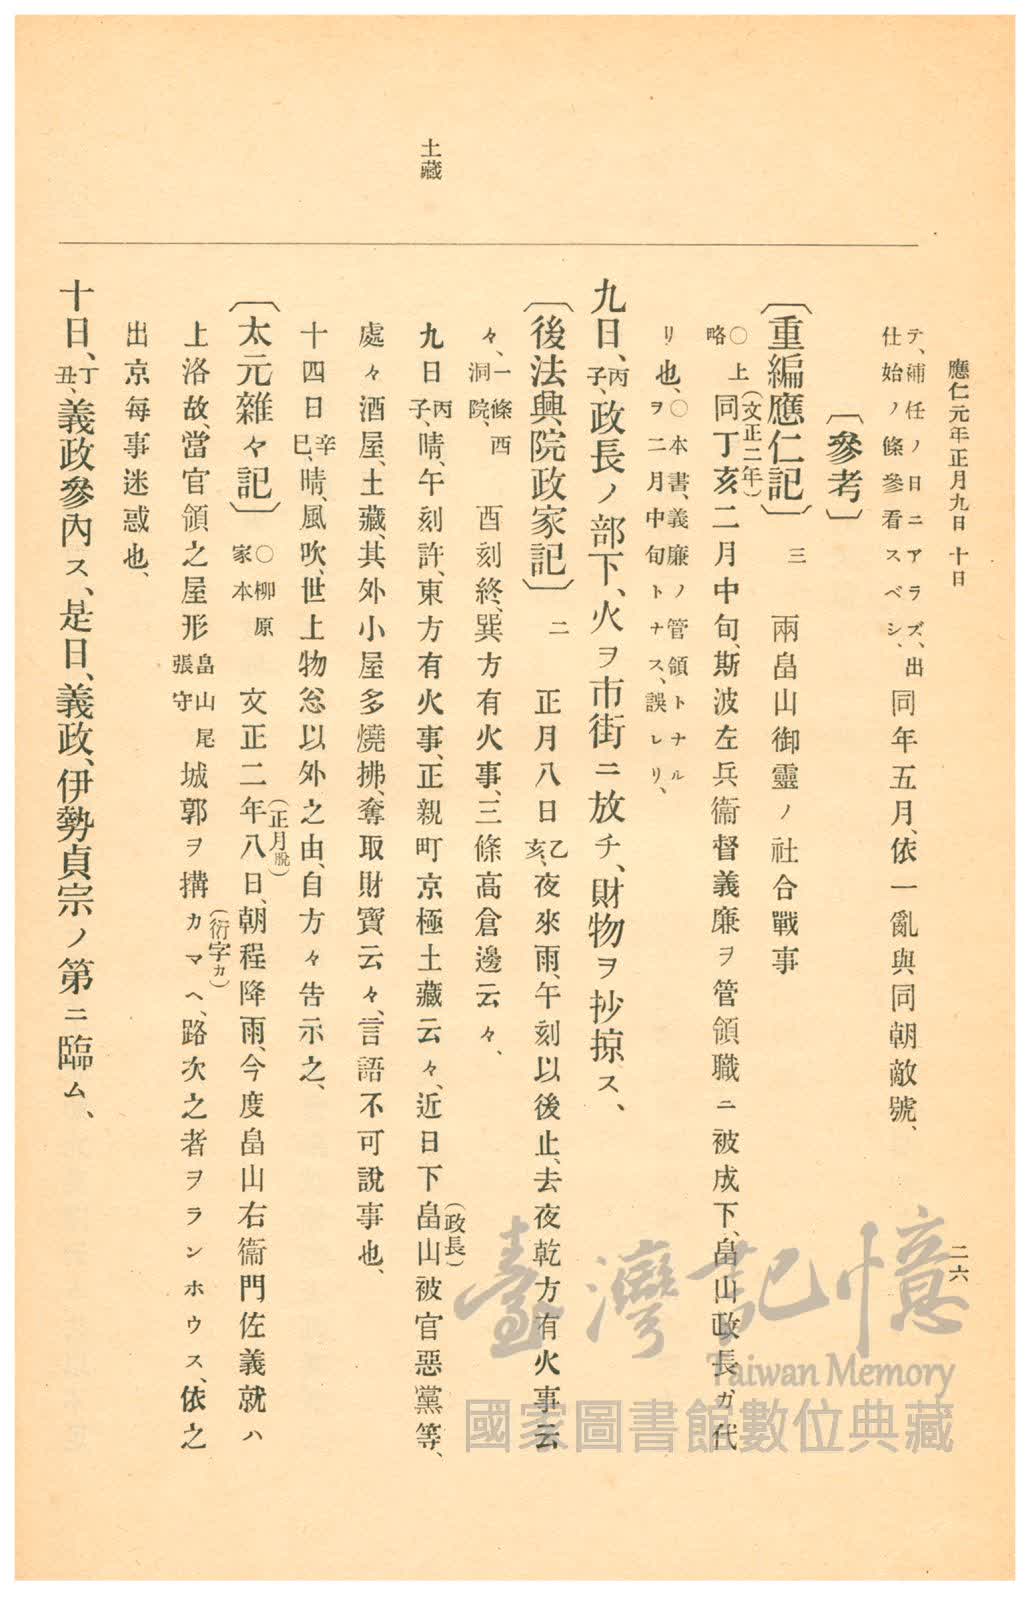 應仁元年正月九日 十日
二六
テ、補任ノ日ニアラズ、出
仕始ノ條參看スベシ、
同年五月、依一亂與同朝敵號、
〔參考〕
〔重編應仁記〕 三 兩畠山御靈ノ社合戰事
○上略 同(文正二年)丁亥二月中旬、斯波左兵衞督義廉ヲ管領職ニ被成下、畠山政長ガ代
リ也、○本書、義廉ノ管領トナルヲ二月中旬トナス、誤レリ、
九日、丙子、政長ノ部下、火ヲ市街ニ放チ、財物ヲ抄掠ス、
〔後法興院政家記〕 二 正月八日乙亥、夜來雨、午刻以後止、去夜乾方有火事云
々、一條西洞院、 酉刻終、巽方有火事、三條高倉邊云々、
土藏
九日丙子、晴、午刻許、東方有火事、正親町京極土藏云々、近日下畠山(政長)被官惡黨等、
處々酒屋、土藏、其外小屋多燒拂、奪取財寶云々、言語不可說事也、
十四日辛巳、晴、風吹、世上物忩以外之由、自方々告示之、
〔太元雜々記〕 ○柳原家本 文正二年(正月脫)八日、朝程降雨、今度畠山右衞門佐義就ハ
上洛故、當官領之屋形畠山尾張守城郭ヲ搆カマ(衍字カ)ヘ、路次之者ヲランホウス、依之
出京每事迷惑也、
十日、丁丑、義政參內ス、是日、義政、伊勢貞宗ノ第ニ臨ム、
臺灣記憶
Taiwan Memory
國家圖書館數位典藏